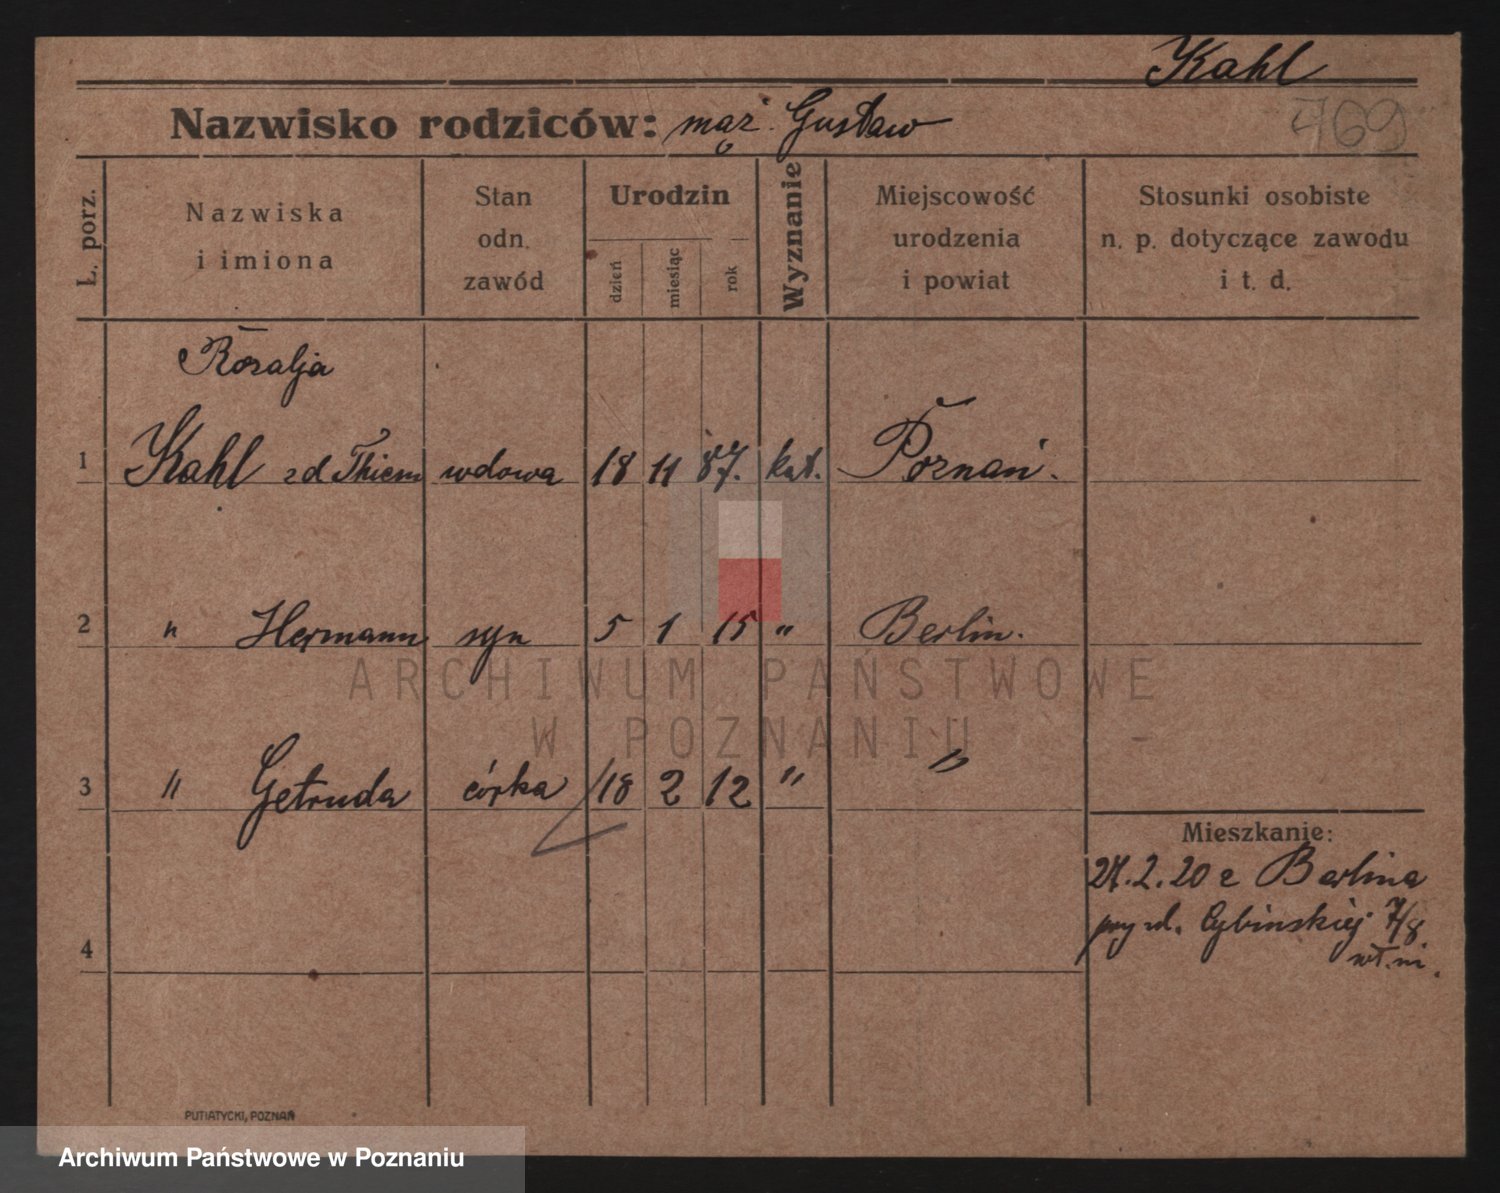 Kahl
Nazwisko rodziców: mąż. Gustaw
769
L. porz.
Nazwiska i imiona
Stan odn. zawód
Urodzin
dzień
miesiąc
rok
Wyznanie
Miejscowość urodzenia i powiat
Stosunki osobiste n. p. dotyczące zawodu i t. d.
Rozalja
1 Kahl zd Thiem wdowa 18 11 87. kat. Poznań.
2 " Hermann syn 5 1 15 " Berlin.
ARCHIWUM PAŃSTWOWE
W POZNANIU
3 " Getruda córka 18 2 12 " "
Mieszkanie:
2.20 z Berlina
przy ul. Cybinskiej 7/8
4
PUTIATYCKI, POZNAŃ
Archiwum Państwowe w Poznaniu